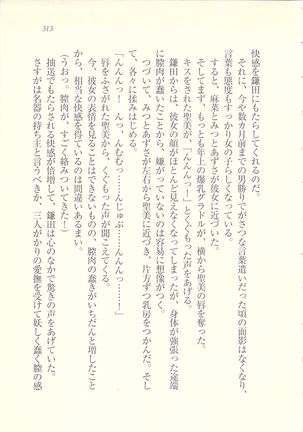 313
快感を鎌田にもたらしてくれるのだ。
それに、今や数カ月前までの男勝りでがさつな言葉遣いだった頃の面影はなくなり、
言葉も態度もすっかり女の子らしくなっている。
すると、麻菜とみつとあずさが彼女に近づいた。
そしてまず、もっとも年上の爆乳グラドルが、横から聖美の唇を奪った。
キスをされた聖美が、「んんんっ！」とくぐもった声をあげる。
鎌田からは、彼女の顔がほとんど見えなくなってしまったが、身体が強張った途端
に膣肉が蠢いたことから、嫌がっていないのは容易に想像がつく。
つづいて、みつとあずさが左右から聖美に近づき、片方ずつ乳房をつかんだ。そし
て、各々に揉みはじめる。
「んんんっ！ んっ、んむっ……んじゅぶ……んんんっ……！」
唇をふさがれた聖美から、くぐもった声が聞こえてくる。
今、彼女の表情を見ることはできないものの、膣肉の蠢きがいちだんと増したこと
から、相当な快感を得ているのは間違いあるまい。
（うおっ。膣肉が、すごく絡みついてきた！）
抽送でもたらされる快感が倍増して、鎌田は心のなかで驚きの声をあげていた。
さすがは名器の持ち主と言うべきか、三人がかりの愛撫を受けて妖しく蠢く膣の感